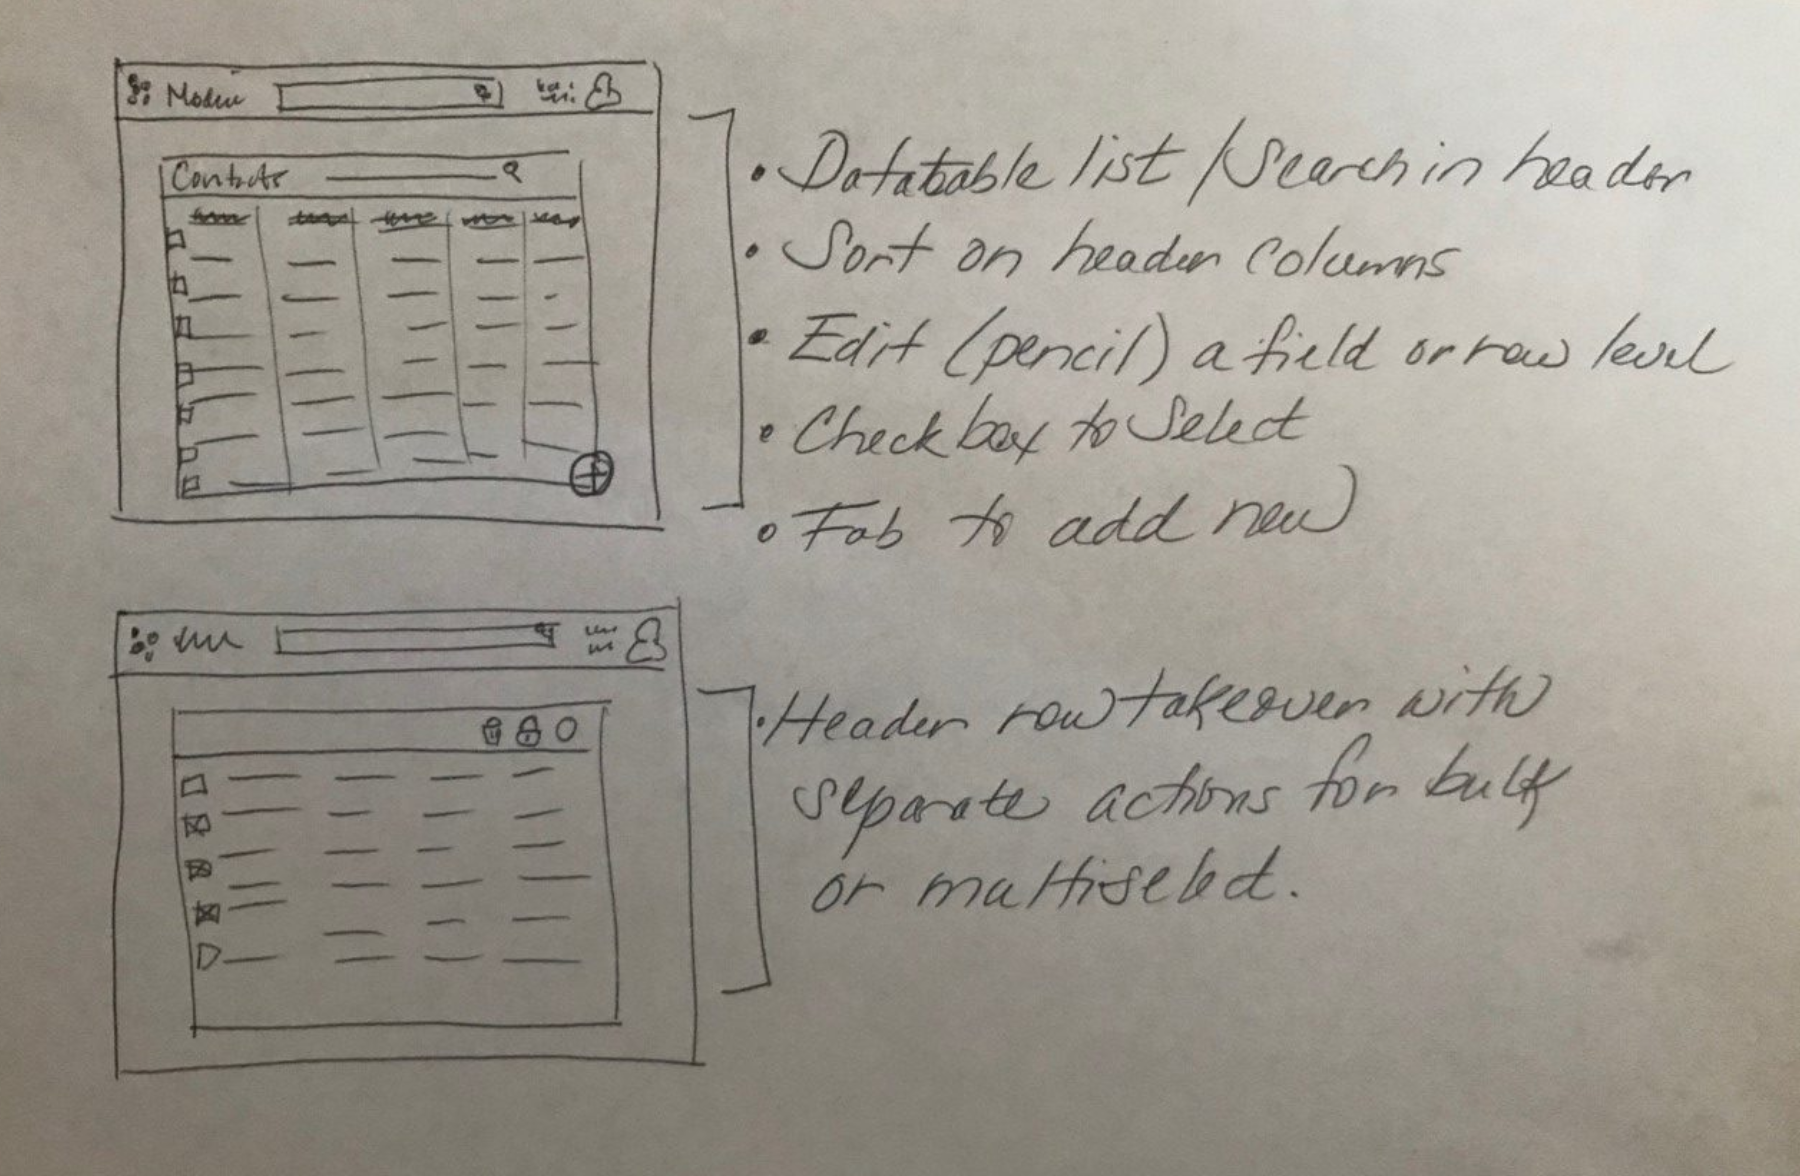 Contacts
• Datatbable list / Search in header
• Sort on header columns
• Edit (pencil) a field or row level
• Checkbox to Select
• Fab to add new
• Header row takeover with
separate actions for bulk
or multiselect.